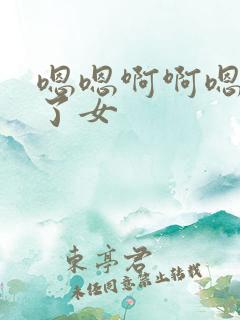 嗯嗯啊啊嗯
了女
東亭君
未经同意禁止转载